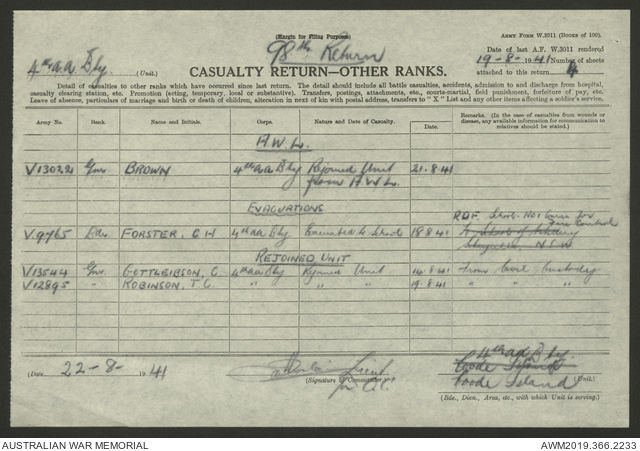 (Margin for Filing Purposes)
ARMY FORM W.2011 (BOOKS OF 100).
98th Return
Date of last A.F. W.2011 rendered
19-8-1941
4th a.a. Bty. (Unit.)
CASUALTY RETURN—OTHER RANKS.
Number of sheets
attached to this return 4
Detail of casualties to other ranks which have occurred since last return. The detail should include all battle casualties, accidents, admission to and discharge from hospital,
casualty clearing station, etc. Promotion (acting, temporary, local or substantive). Transfers, postings, attachments, etc., courts-martial, field punishment, forfeiture of pay, etc.
Leave of absence, particulars of marriage and birth or death of children, alteration in next of kin with postal address, transfers to "X" List and any other items affecting a soldier's service.
Army No. Rank. Name and Initials. Corps. Nature and Date of Casualty. Date. Remarks. (In the case of casualties from wounds or
disease, any available information for communication to
relatives should be stated.)
A.W.L.
Gnr. BROWN 4th aa Bty Rejoined Unit 21.8.41
from A.W.L.
EVACUATIONS
V.9765 FORSTER, C H 4th aa Bty 18 8 41
REJOINED UNIT
V13544 Gnr. GOTTLEIBSON, C. 4th aa Bty Rejoined Unit 14.8.41 from Civil Custody
V12895 " ROBINSON, T.C. " " " 19.8.41 " " "
(Date) 22-8-1941
Lieut
(Signature of Commander)
4th aa Bty.
Coode Island
Coode Island (Unit.)
(Bde., Divn., Area, etc., with which Unit is serving.)
AUSTRALIAN WAR MEMORIAL
AWM2019.366.2233